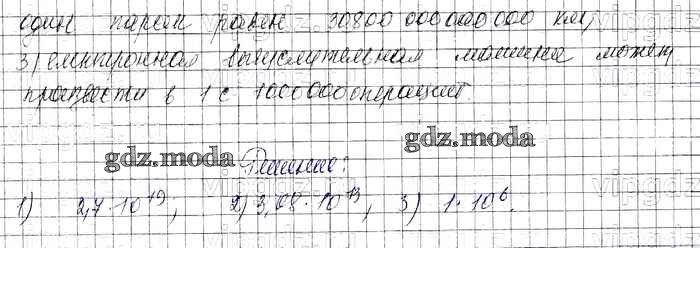 один парсек равен 30800 000 000 000 км,
3) електронная вычуслительная машина может
произвести в 1 с 1000000 операций.
gdz.moda gdz.moda
Решение:
1) 2,7·10¹⁹; 2) 3,08·10¹³, 3) 1·10⁶.
vipgdz